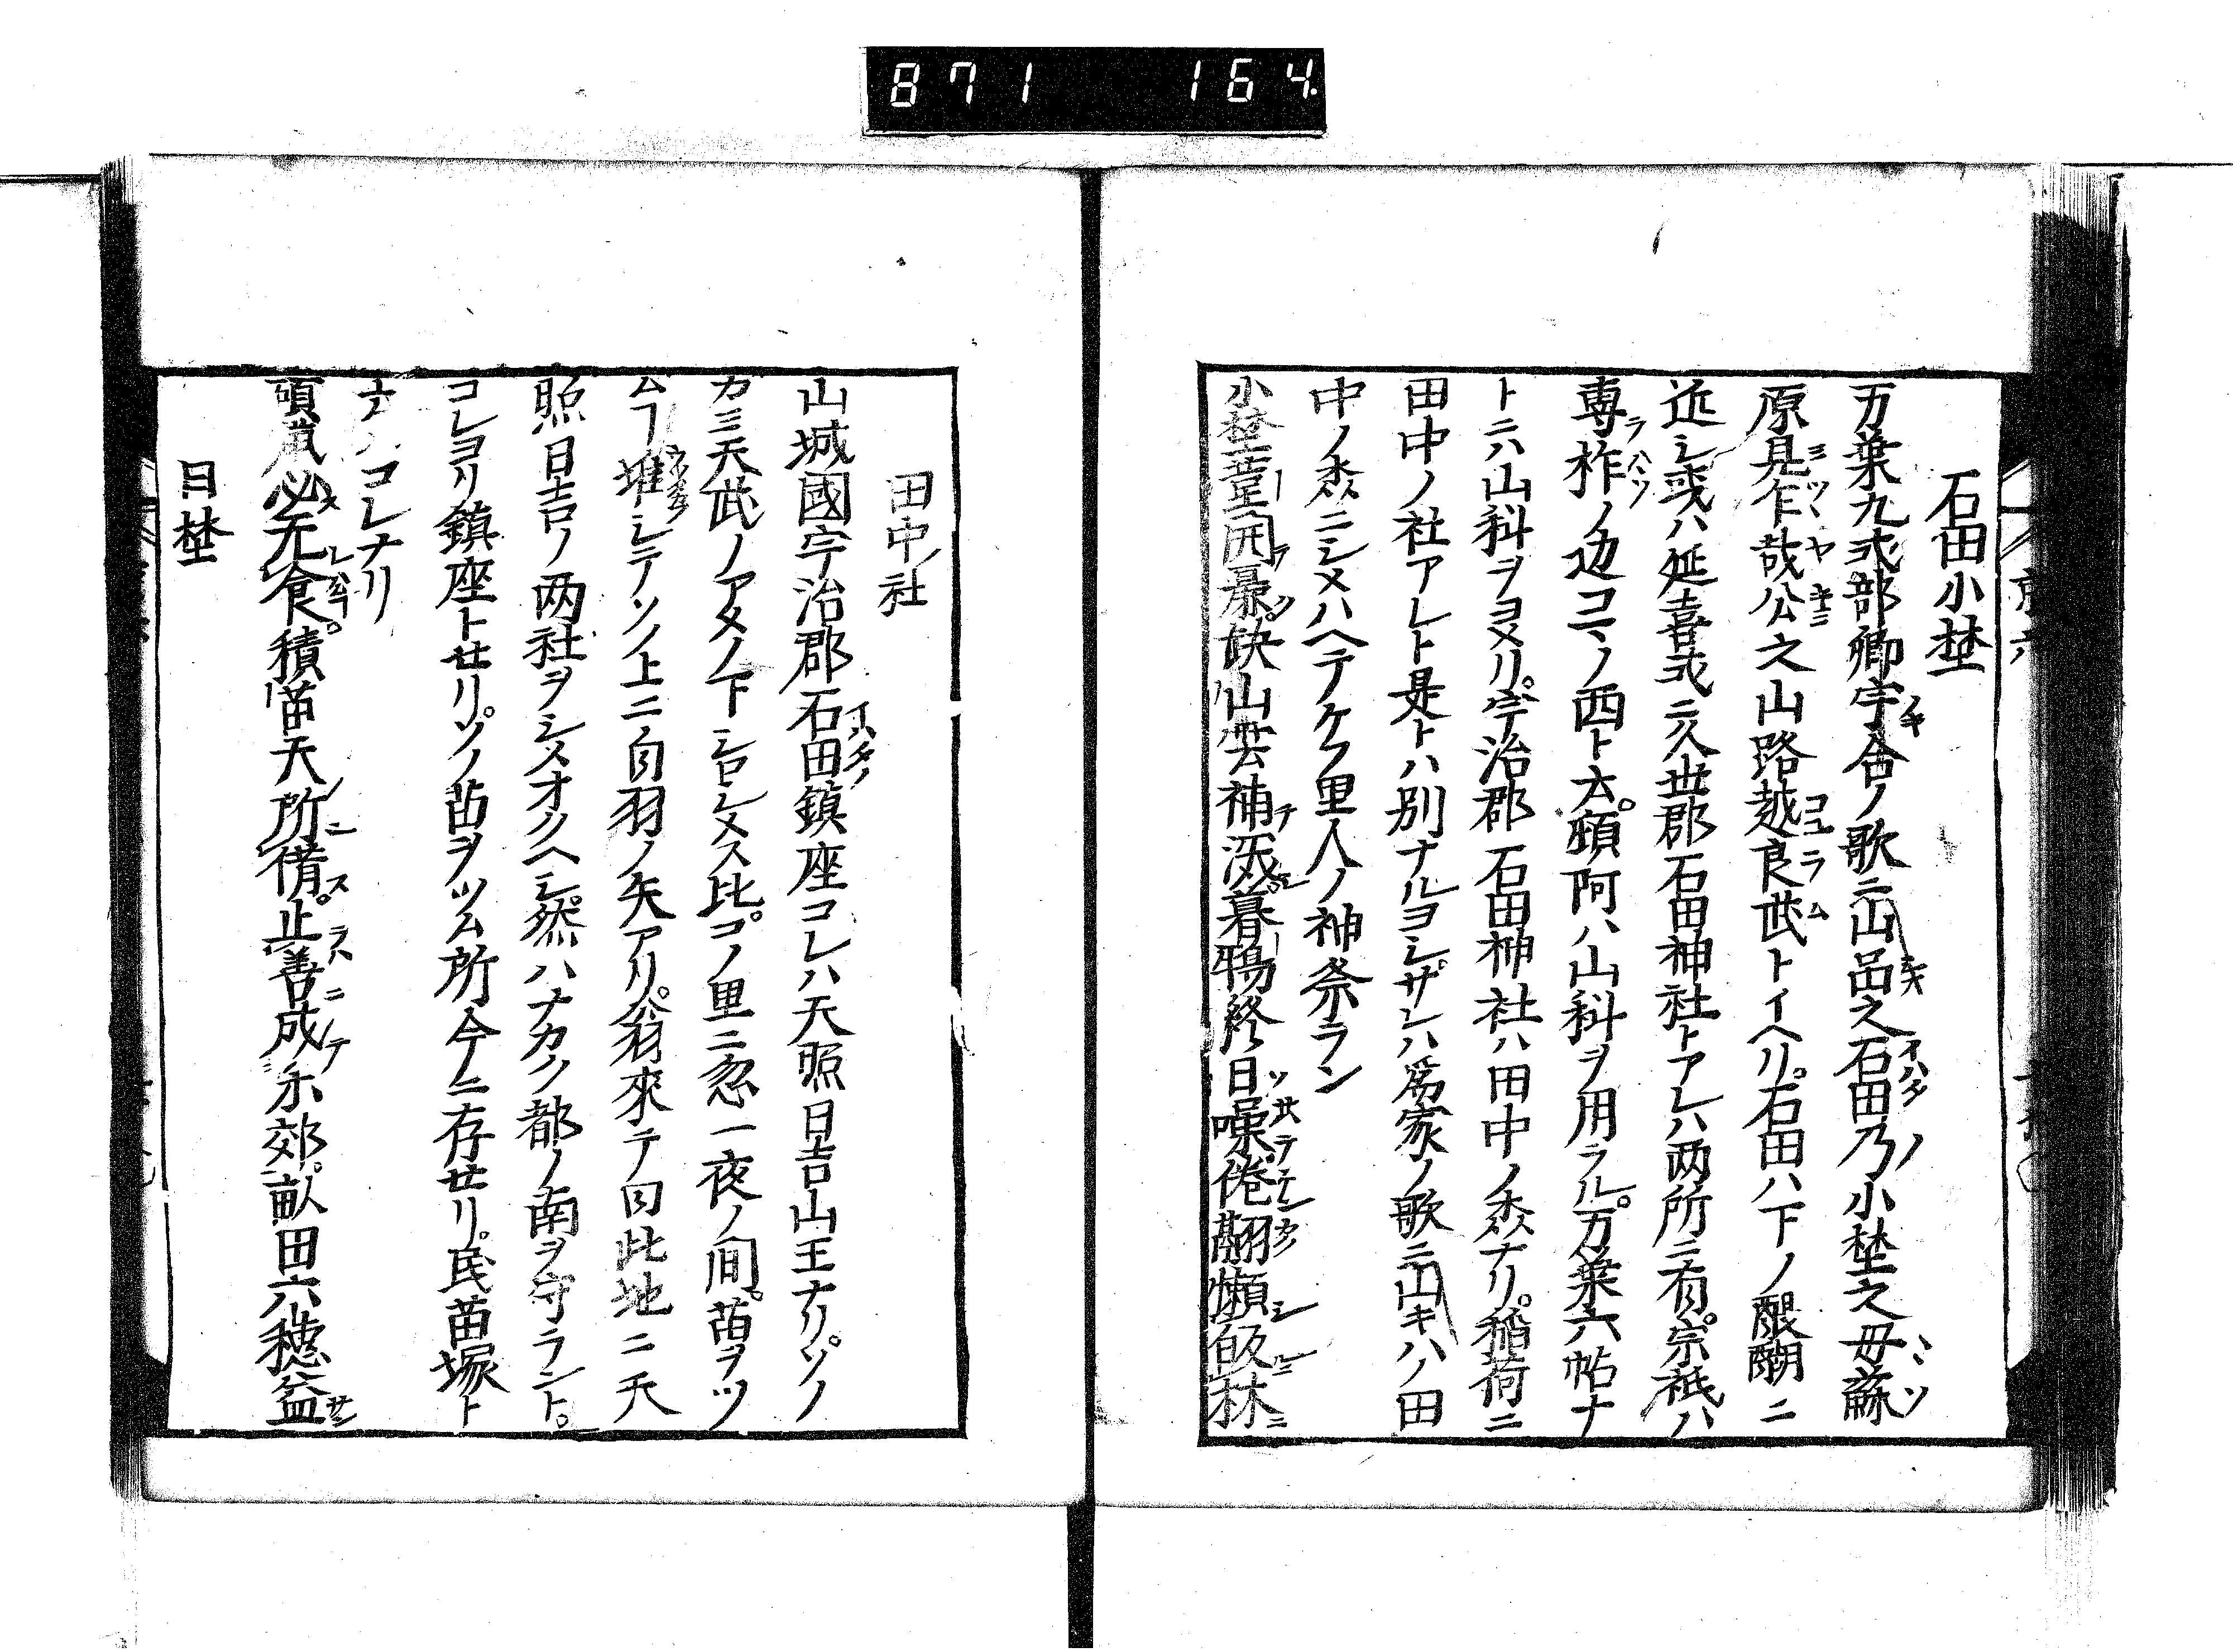 871 164.
石田小埜
万葉九式部卿宇合ノ歌ニ山品之石田乃小埜之毋蘇
原見乍哉公之山路越良武トイヘリ。石田ハ下ノ醍醐ニ
近シ或ハ延喜式ニ久世郡石田神社トアレハ両所ニ有。宗祇ハ
専柞ノ辺コヽノ西ト云。頓阿ハ山科ヲ用ラル。万葉六帖ナ
トニハ山科ヲヨメリ。宇治郡石田神社ハ田中ノ森ナリ。稲荷ニ
田中ノ社アレト是トハ別ナルヨシザレハ爲家ノ歌ニ山キハノ田
中ノ森ニシメハヘテケフ里人ノ神祭ラン
小埜 開 缺山雲補 暮鴉終日噪倦翻懶皈林
田中社
山城國宇治郡石田鎮座コレハ天照日吉山王ナリ。ソノ
カミ天武ノアタノ下シロシメス比。コノ里ニ忽一夜ノ間。苗ヲツ
ムフ堆シテソノ上ニ白羽ノ矢アリ。翁來テ曰此地ニ天
照日吉ノ両社ヲシスオクヘシ。然ハナカク都ノ南ヲ守ラント。
コレヨリ鎮座ト世リ。ソノ苗ヲツム所今ニ存世リ。民苗塚ト
ナ コレナリ
頭 必无食。積苗天所 。止善成 郊。畝田六穂益
日埜